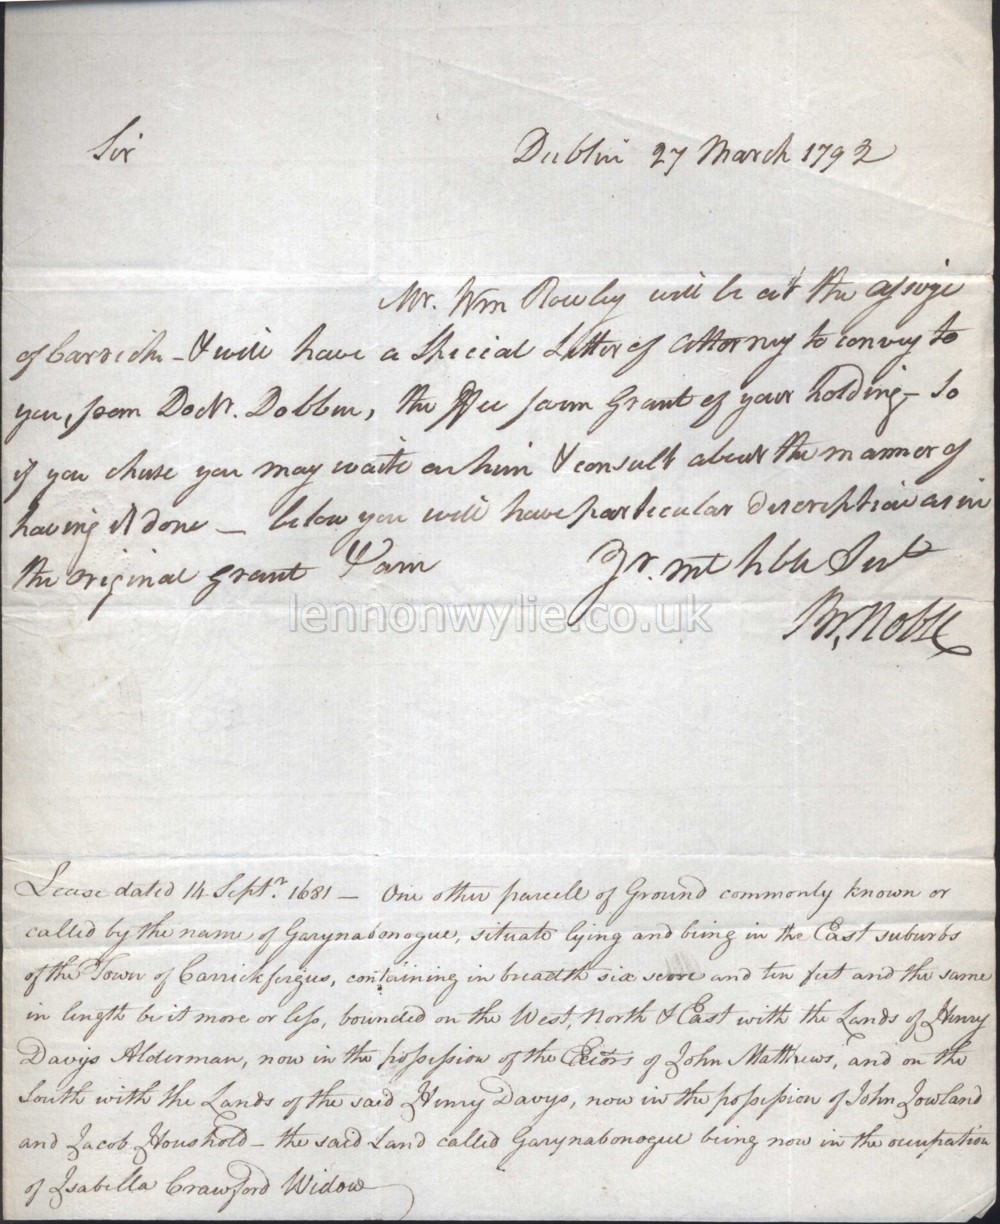 Sir
Dublin 27 March 1792
Mr. Wm Rowley will be at the assize
of Carrick – & will have a Special Letter of Attorney to convey to
you, from Doctr. Dobbin, the Fee farm Grant of your holding – So
if you chuse you may waite on him & consult about the manner of
having it done – below you will have particular Discreption as in
the original Grant I am
Yr. mt hble Servt
Br. Noble
lennonwylie.co.uk
Lease dated 14 Septr. 1681 – One other parcell of Ground commonly known or
called by the name of Garynabonogue, situate lying and being in the East suburbs
of the Town of Carrickfergus, containing in breadth six score and ten feet and the same
in length be it more or less, bounded on the West, North & East with the Lands of Henry
Davys Alderman, now in the possession of the Exors of John Matthews, and on the
South with the Lands of the said Henry Davys, now in the possession of John Jowland
and Jacob Houshold – the said Land called Garynabonogue being now in the occupation
of Isabella Crawford Widow